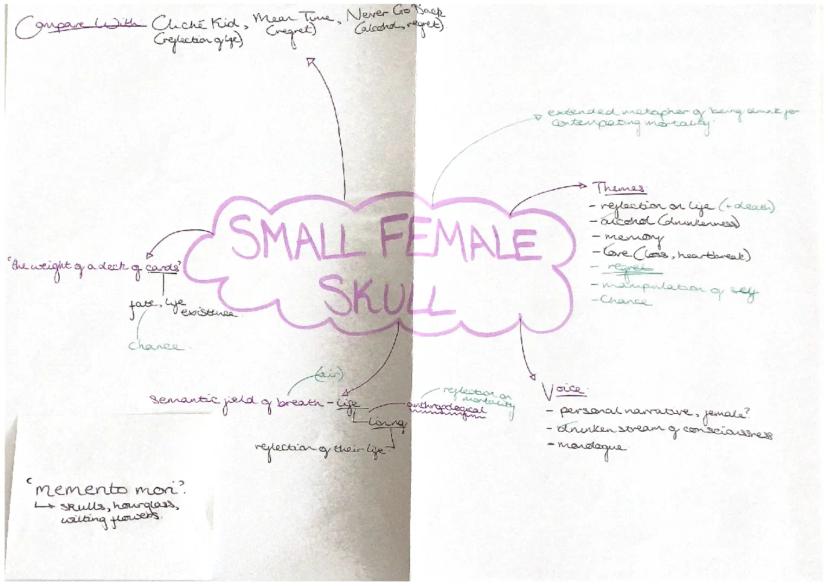 Compare With Cliché Kid, Mean Time, Never Go Back
(reflection of life) (regret) (alcohol, regret)
extended metaphor of being drunk for
contemplating mortality.
Themes:
- reflection on life (+ death)
- alcohol (drunkenness)
- memory
- love (loss, heartbreak)
- regret
- manipulation of self
- Chance
SMALL FEMALE
SKULL
'the weight of a deck of cards'
fate, life
existence
chance
(air)
Semantic field of breath - life
reflection on
mortality
loving
reflection of their life
Voice:
- personal narrative, female?
- drunken stream of consciousness
- monologue
'memento mori'.
↳ skulls, hourglass,
wilting flowers.